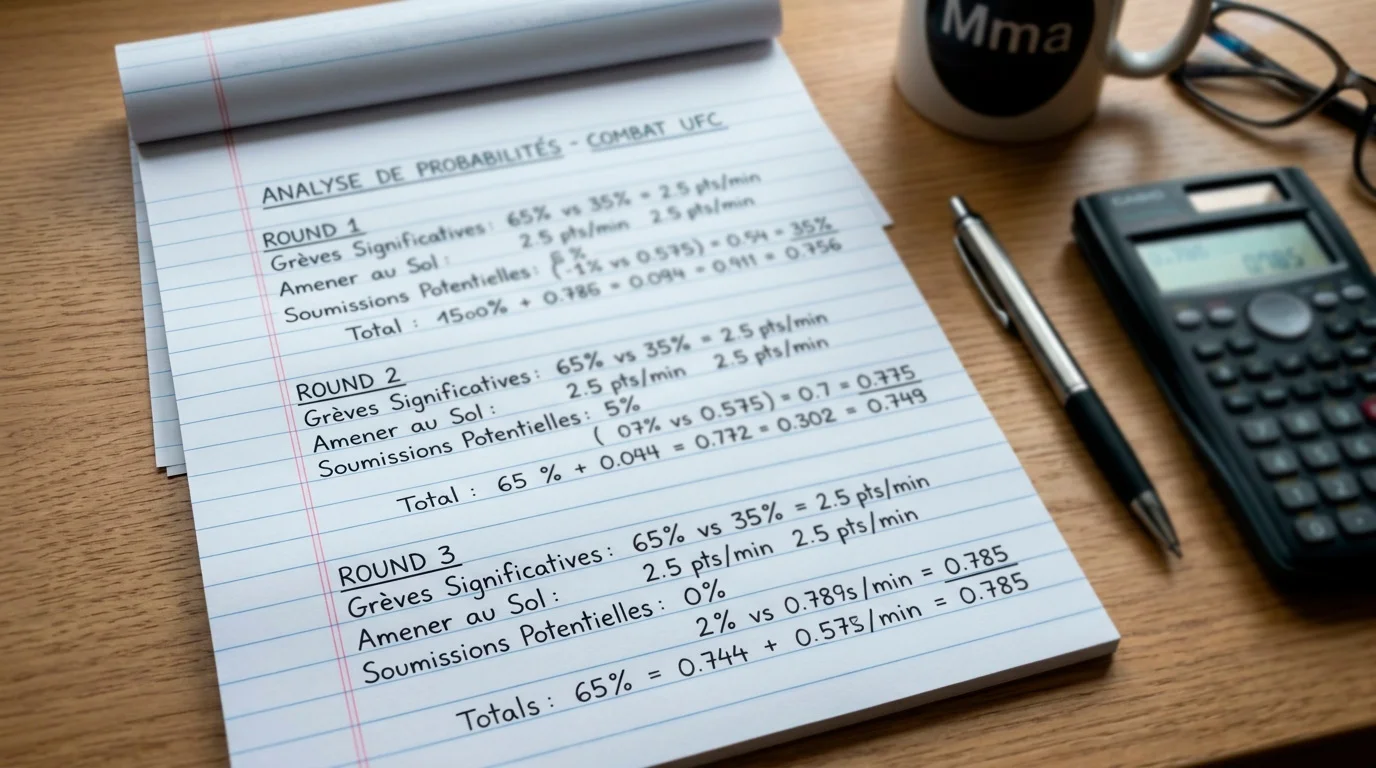 Mma
CASIO
ANALYSE DE PROBABILITÉS - COMBAT UFC
ROUND 1
Grèves Significatives: 65% vs 35% = 2.5 pts/min
Amener au Sol: 2.5 pts/min 2.5 pts/min
Soumissions Potentielles: %
(-1% vs 0.575) = 0.54 = 35%
Total: 1500% + 0.786 = 0.094 = 0.911 = 0.756
ROUND 2
Grèves Significatives: 65% vs 35% = 2.5 pts/min
Amener au Sol: 2.5 pts/min 2.5 pts/min
Soumissions Potentielles: 5%
( 07% vs 0.575) = 0.7 = 0.775
Total: 65 % + 0.044 = 0.772 = 0.302 = 0.749
ROUND 3
Grèves Significatives: 65% vs 35% = 2.5 pts/min
Amener au Sol: 2.5 pts/min 2.5 pts/min
Soumissions Potentielles: 0%
2% vs 0.789s/min = 0.785
Totals: 65% = 0.744 + 0.575/min = 0.785